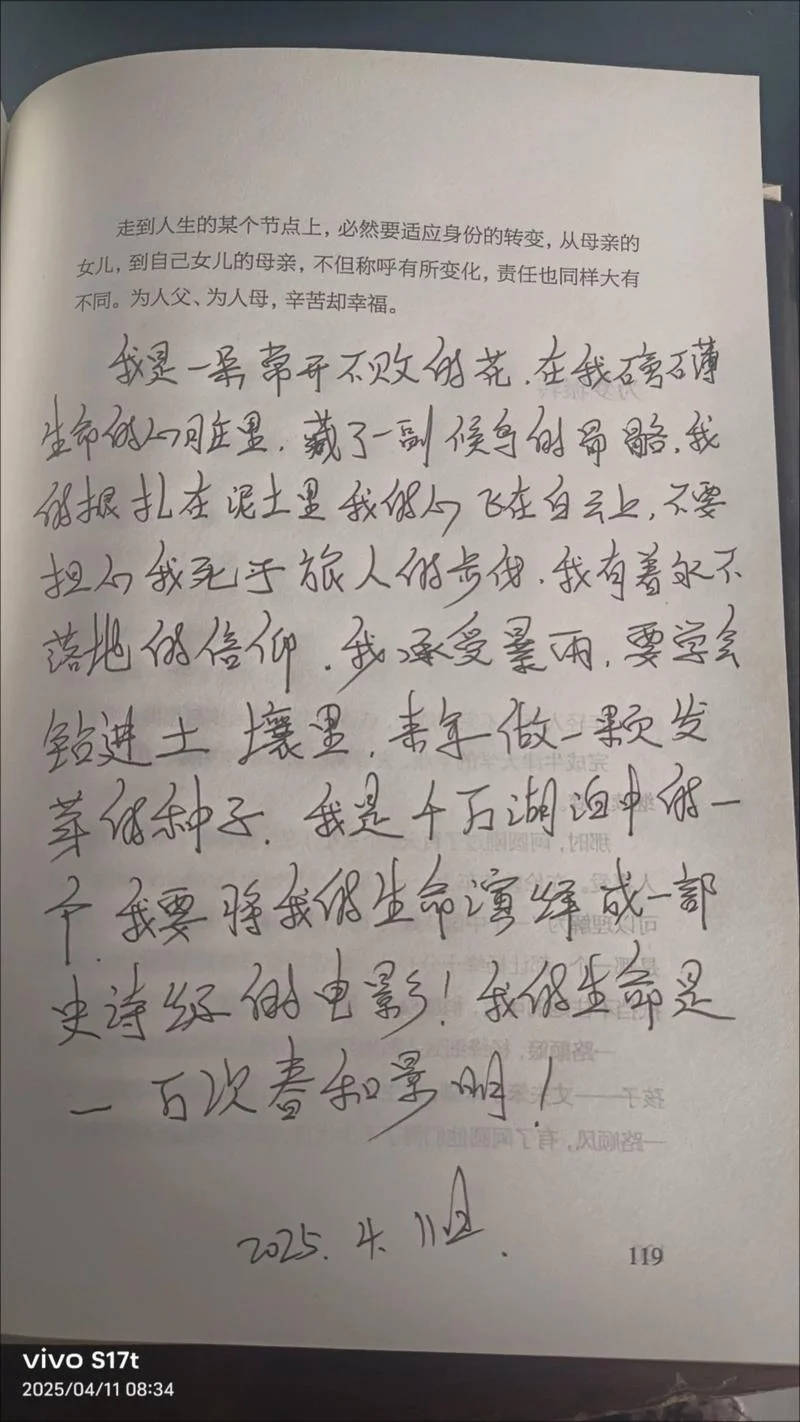 走到人生的某个节点上，必然要适应身份的转变，从母亲的
女儿，到自己女儿的母亲，不但称呼有所变化，责任也同样大有
不同。为人父、为人母，辛苦却幸福。
我是一朵常开不败的花，在我磅礴
生命的心脏里，藏了一副候鸟的骨骼，我
的根扎在泥土里我的心飞在白云上，不要
担心我死于旅人的步伐，我有着永不
落地的信仰，我承受暴雨，要学会
钻进土壤里，来年做一颗发
芽的种子，我是千万湖泊中的一
个，我要将我的生命演绎成一部
史诗级的电影！我的生命是
一万次春和景明！
2025.4.11
119
vivo S17t
2025/04/11 08:34